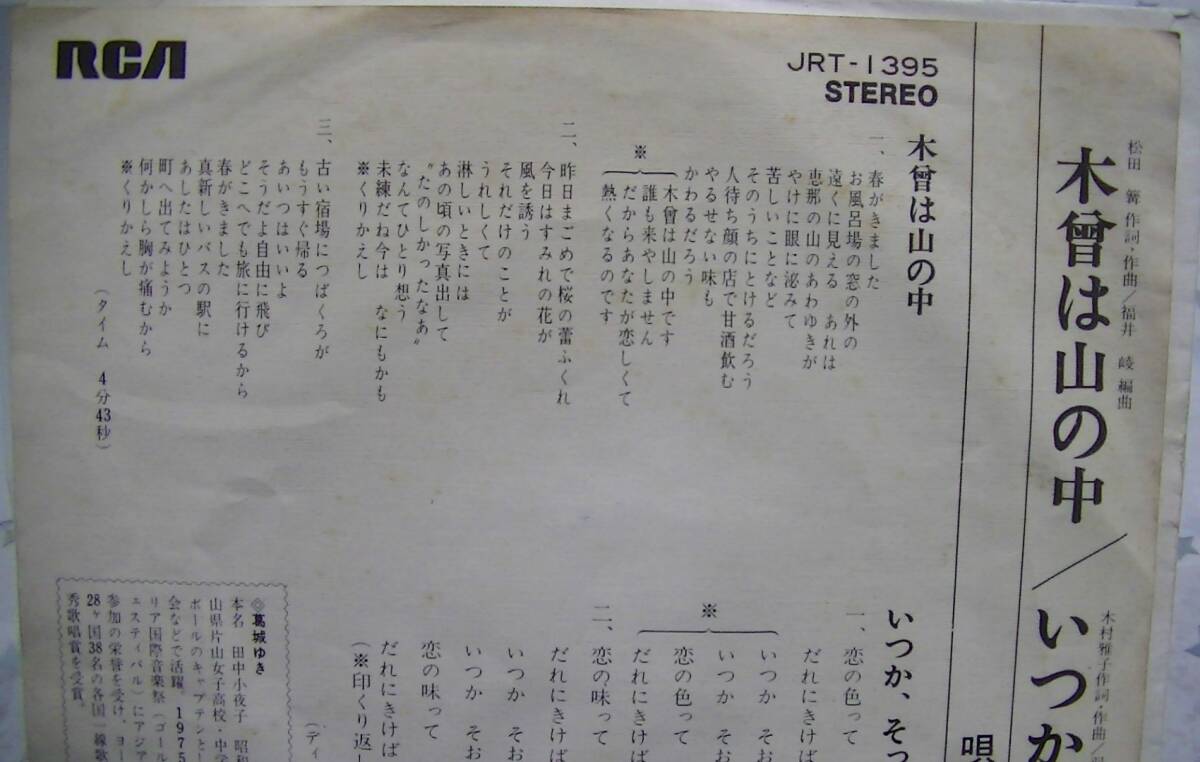 RCA
JRT-1395
STEREO
松田 篝 作詞・作曲/福井 崚 編曲
木曾は山の中/いつか
木村雅子作詞・作曲/
唄
木曾は山の中
一、春がきました
お風呂場の窓の外の
遠くに見える あれは
恵那の山のあわゆきが
やけに眼に泌みて
苦しいことなど
そのうちにとけるだろう
人待ち顔の店で甘酒飲む
やるせない味も
かわるだろう
※
木曾は山の中です
誰も来やしません
だからあなたが恋しくて
熱くなるのです
二、昨日まごめで桜の蕾ふくれ
今日はすみれの花が
風を誘う
それだけのことが
うれしくて
淋しいときには
あの頃の写真出して
〝たのしかったなあ〟
なんてひとり想う
未練だね今は なにもかも
※くりかえし
三、古い宿場につばくろが
もうすぐ帰る
あいつはいいよ
そうだよ自由に飛び
どこへでも旅に行けるから
春がきました
真新しいバスの駅に
あしたはひとつ
町へ出てみようか
何かしら胸が痛むから
※くりかえし
(タイム 4分43秒)
いつか、そっ
一、恋の色って
だれにきけば
※
いつか そお
いつか そお
恋の色って
だれにきけば
二、恋の味って
だれにきけば
いつか そお
いつか そお
恋の味って
だれにきけば
(※印くり返し
(ディ
◎葛城ゆき
本名 田中小夜子 昭和
山県片山女子高校・中学
ボールのキャプテンとし
会などで活躍。1975
リア国際音楽祭(ゴール
ェスティバル)にアジア
参加の栄誉を受け、ヨー
28ヶ国38名の各国一線歌
秀歌唱賞を受賞。